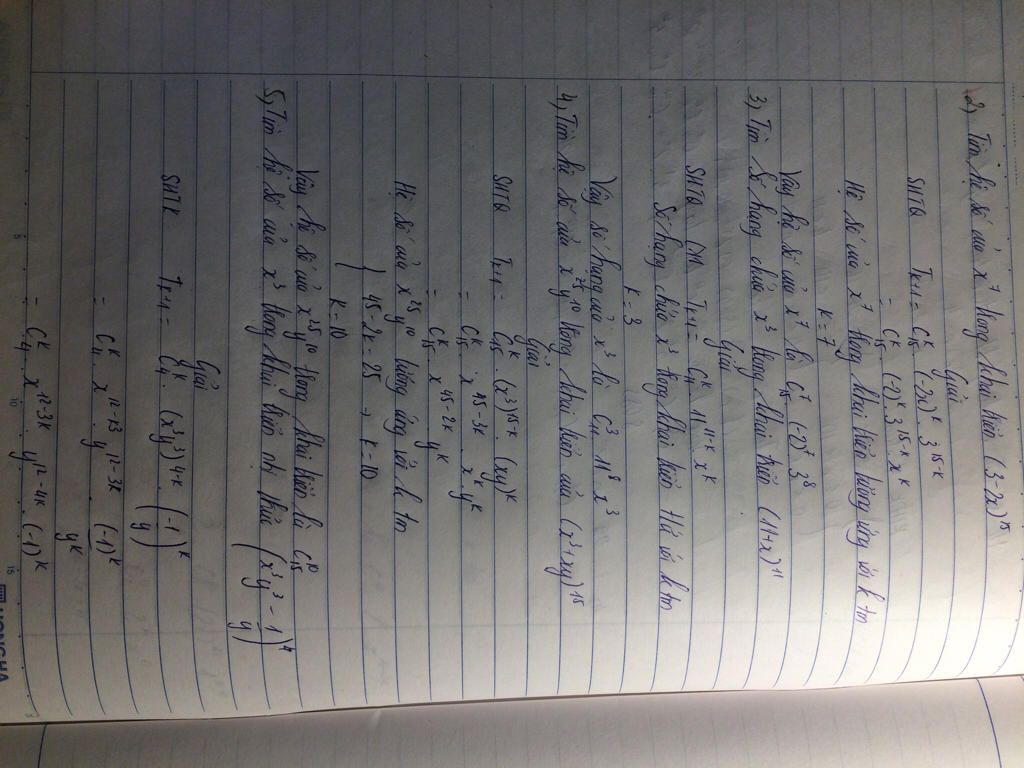 2) Tìm hệ số của x^7 trong khai triển (3-2x)^15
Giải
SHTQ T_{k+1} = C_15^k . (-2x)^k . 3^{15-k}
= C_15^k . (-2)^k . 3^{15-k} . x^k
Hệ số của x^7 trong khai triển tương ứng với k tm
k = 7
Vậy hệ số của x^7 là C_15^7 . (-2)^7 . 3^8
3) Tìm số hạng chứa x^3 trong khai triển (11+x)^11
Giải
SHTQ T_{k+1} = C_11^k . 11^{11-k} . x^k
Số hạng chứa x^3 trong khai triển với k tm
k = 3
Vậy số hạng của x^3 là C_11^3 . 11^8 . x^3
4) Tìm hệ số của x^25 y^10 trong khai triển của (x^3+xy)^15
Giải
SHTQ T_{k+1} = C_15^k . (x^3)^{15-k} . (xy)^k
= C_15^k . x^{45-3k} . x^k . y^k
= C_15^k . x^{45-2k} . y^k
Hệ số của x^25 y^10 tương ứng với k tm
{ 45-2k = 25 → k = 10
k = 10
Vậy hệ số của x^25 y^10 trong khai triển là C_15^10
5) Tìm hệ số của x^3 trong khai triển nhị thức (x^3y^3 - 1/y)^4
Giải
SHTK T_{k+1} = C_4^k . (x^3y^3)^{4-k} . (-1/y)^k
= C_4^k . x^{12-k3} . y^{12-3k} . (-1)^k/y^k
= C_4^k . x^{12-3k} . y^{12-4k} . (-1)^k